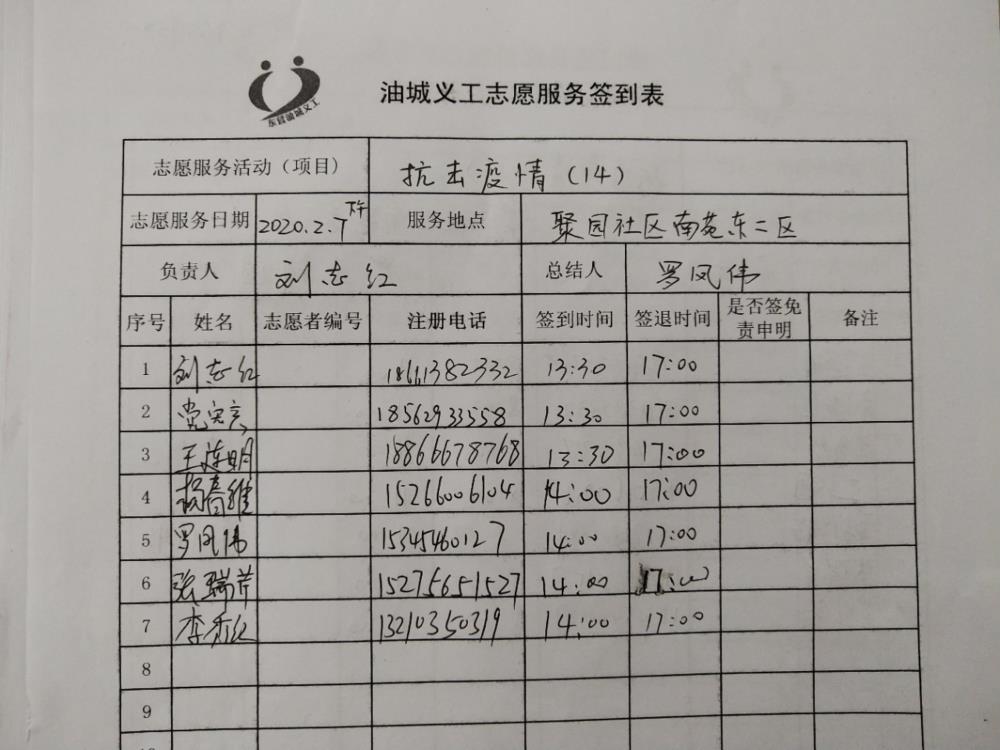 东营油城义工
油城义工志愿服务签到表
志愿服务活动（项目） 抗击疫情（14）
志愿服务日期 2020.2.7下午 服务地点 聚园社区南苑东二区
负责人 刘志红 总结人 罗凤伟
序号 姓名 志愿者编号 注册电话 签到时间 签退时间 是否签免责申明 备注
1 刘志红 18661382332 13:30 17:00
2 18562933558 13:30 17:00
3 王连明 18866678768 13:30 17:00
4 杨春雅 15266006104 14:00 17:00
5 罗凤伟 15345460127 14:00 17:00
6 张瑞芹 15275651527 14:00 17:00
7 李秀红 13210350319 14:00 17:00
8
9